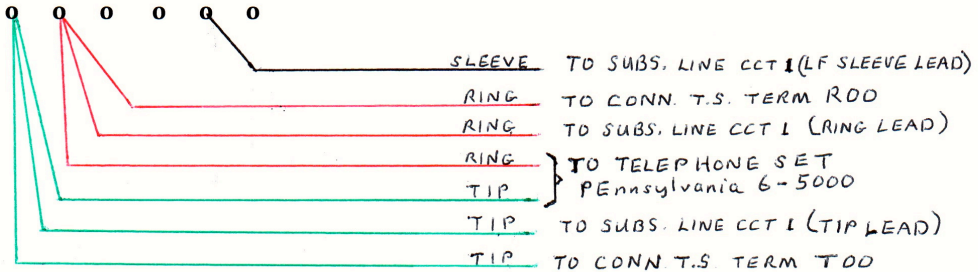 o o o o o o
SLEEVE TO SUBS. LINE CCT 1 (LF SLEEVE LEAD)
RING TO CONN. T.S. TERM R00
RING TO SUBS. LINE CCT 1 (RING LEAD)
RING TO TELEPHONE SET
TIP PEnnsylvania 6-5000
TIP TO SUBS. LINE CCT 1 (TIP LEAD)
TIP TO CONN. T.S. TERM T00